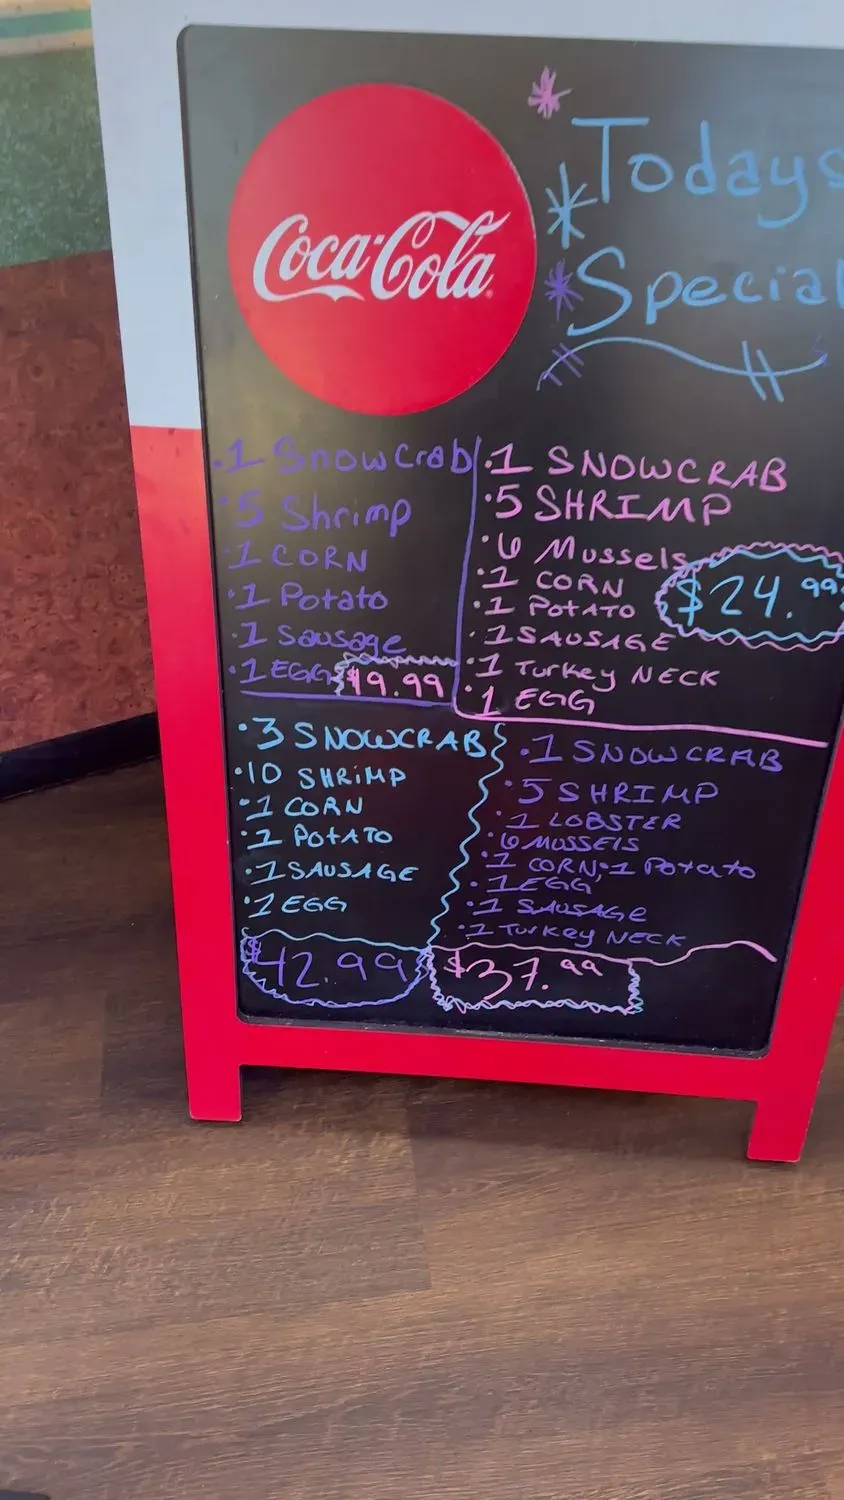 Coca-Cola
Todays
Special
·1 Snowcrab
·5 Shrimp
·1 CORN
·1 Potato
·1 Sausage
·1 EGG $19.99
·1 SNOWCRAB
·5 SHRIMP
·6 Mussels
·1 CORN
$24.99
·1 POTATO
·1 SAUSAGE
·1 Turkey NECK
·1 EGG
·3 SNOWCRAB
·10 SHRIMP
·1 CORN
·1 POTATO
·1 SAUSAGE
·1 EGG
$42.99
·1 SNOWCRAB
·5 SHRIMP
·1 LOBSTER
·6 MUSSELS
·1 CORN, ·1 Potato
·1 EGG
·1 SAUSAGE
·1 Turkey NECK
$37.99